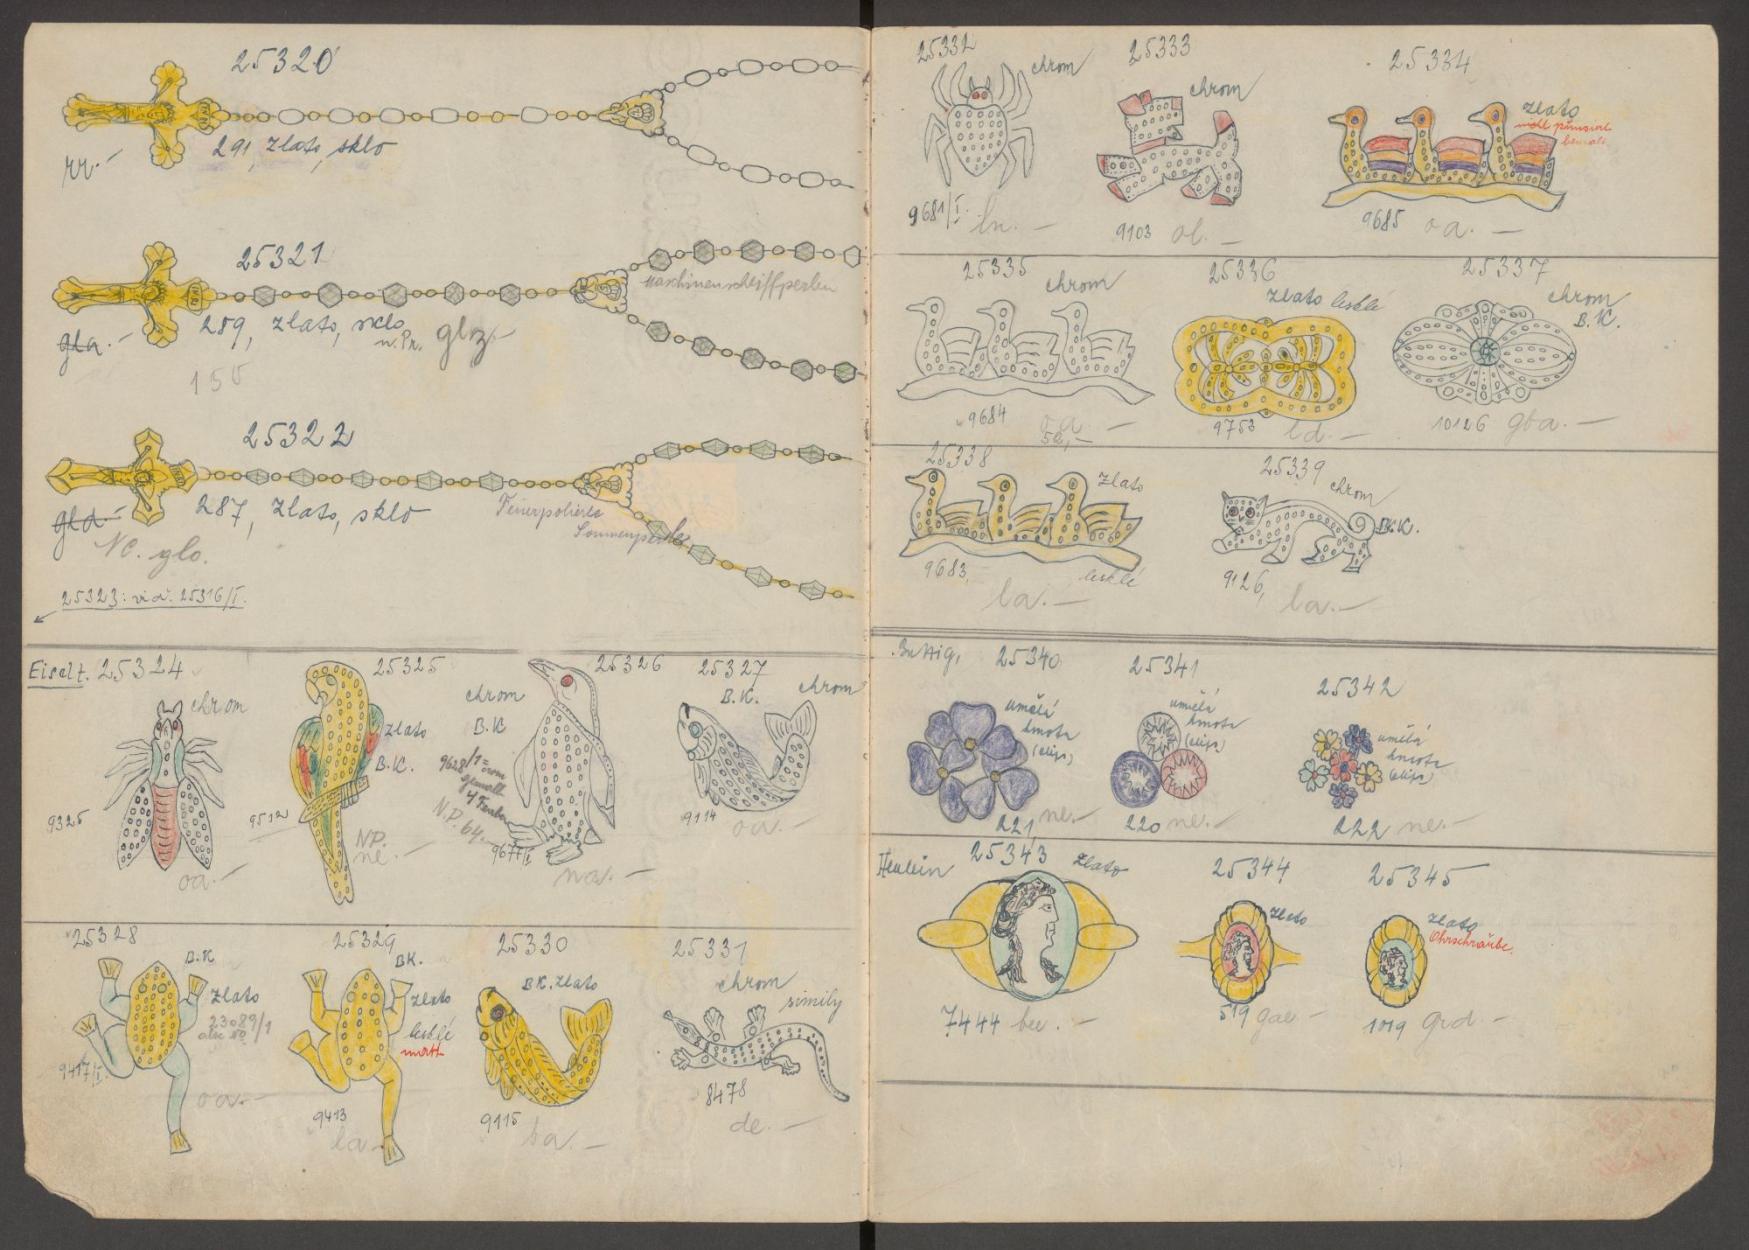 25320
291, zlato, sklo
rr.-
25321
Maschinenschliffperlen
289, zlato, sklo
n.Pr. glz.-
gla.-
150
25322
287, zlato, sklo
gld.-
NC. glo.
Feuerpolierte
Sonnenperle
25323: vid. 25316/I.
Eiselt. 25324
chrom
9325
oa.-
25325
zlato
B.K.
9512
NP.
ne.-
25326
chrom
B.K
N.P. 64.
9677/I
na.-
25327
B.K.
chrom
9114
oa.-
25328
B.K
zlato
23089/1
9417/I.
oa.-
25329
BK.
zlato
lesklé
matt
9413
la-
25330
BK. zlato
9115
ba.-
25331
chrom
simily
8478
de.-
25332
chrom
9681/I.
ln.-
25333
chrom
9103 ol.-
25334
zlato
9685 oa.-
25335
chrom
9684
oa.-
25336
zlato lesklé
9753 ld.-
25337
chrom
B.K.
10126 gba.-
25338
zlato
9683
lesklé
la.-
25339
chrom
B.K.
9126,
la.-
25340
umělá
hmota
(clips)
221, ne.-
25341
umělá
hmota
(clips)
220 ne.-
25342
umělá
hmota
(clips)
222 ne.-
25343
zlato
7444 bee.-
25344
zlato
519 gae-
25345
zlato
Ohrschraube
1019 grd.-